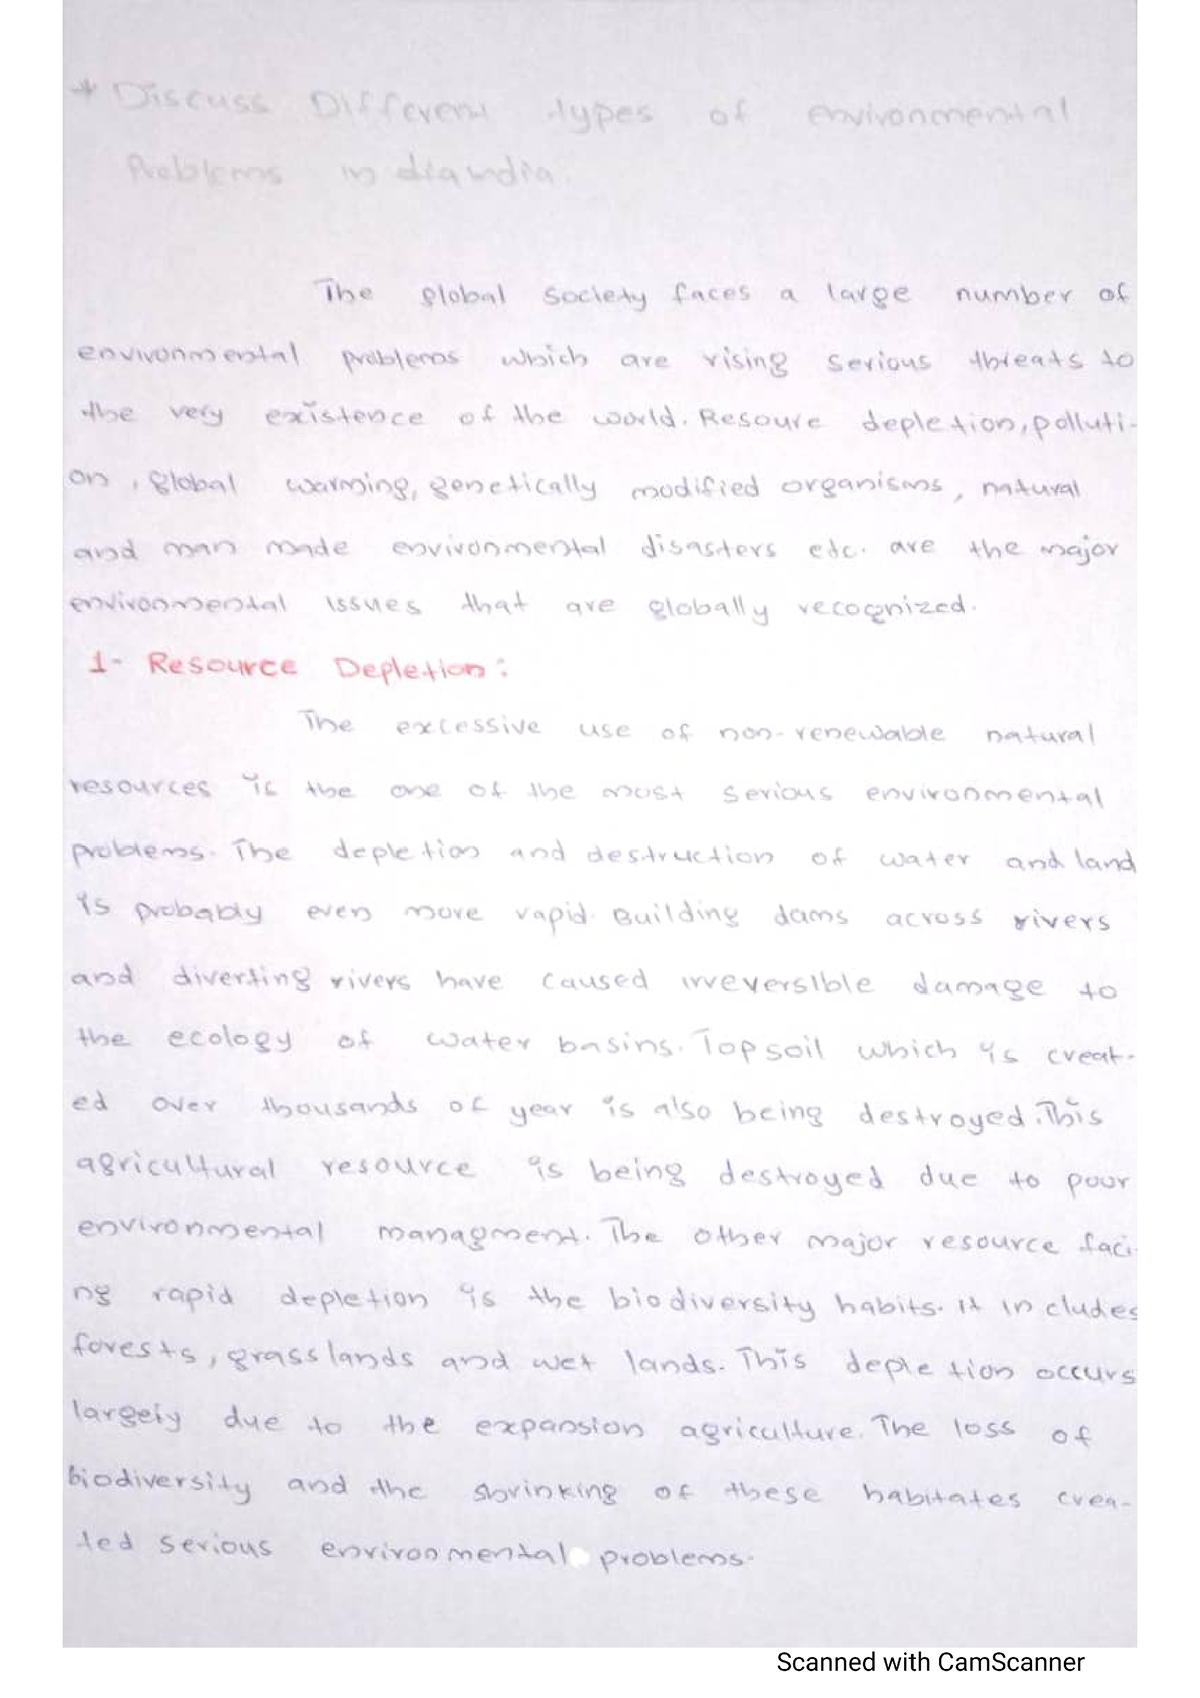 * Discuss Different types of environmental
Problems in
The global society faces a large number of
environmental problems which are rising serious threats to
the very existence of the world. Resoure depletion, polluti-
on, global warming, genetically modified organisms, natural
and man made environmental disasters etc. are the major
environmental issues that are globally recognized.
1- Resource Depletion:
The excessive use of non-renewable natural
resources is the one of the most serious environmental
problems. The depletion and destruction of water and land
is probably even more rapid. Building dams across rivers
and diverting rivers have caused irreversible damage to
the ecology of water basins. Top soil which is creat-
ed over thousands of year is also being destroyed. This
agricultural resource is being destroyed due to pour
environmental managment. The other major resource faci-
ng rapid depletion is the biodiversity habits. It in cludes
forests, grass lands and wet lands. This depletion occurs
largely due to the expansion agriculture. The loss of
biodiversity and the shrinking of these habitates crea-
ted serious environmental problems.
Scanned with CamScanner